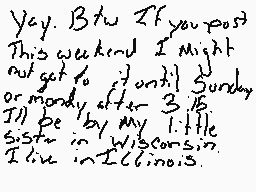 Yay. Btw If you post
This weekend I Might
not get to it until Sunday
or monday after 3:15
I'll be by My little
sister in Wisconsin.
I live in Illinois.